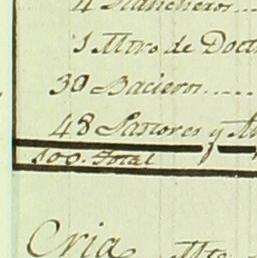 4 Rancheros....
1 Mtro de Doct
30 Bacieros.....
48 Pastores y
100. Total
Cria